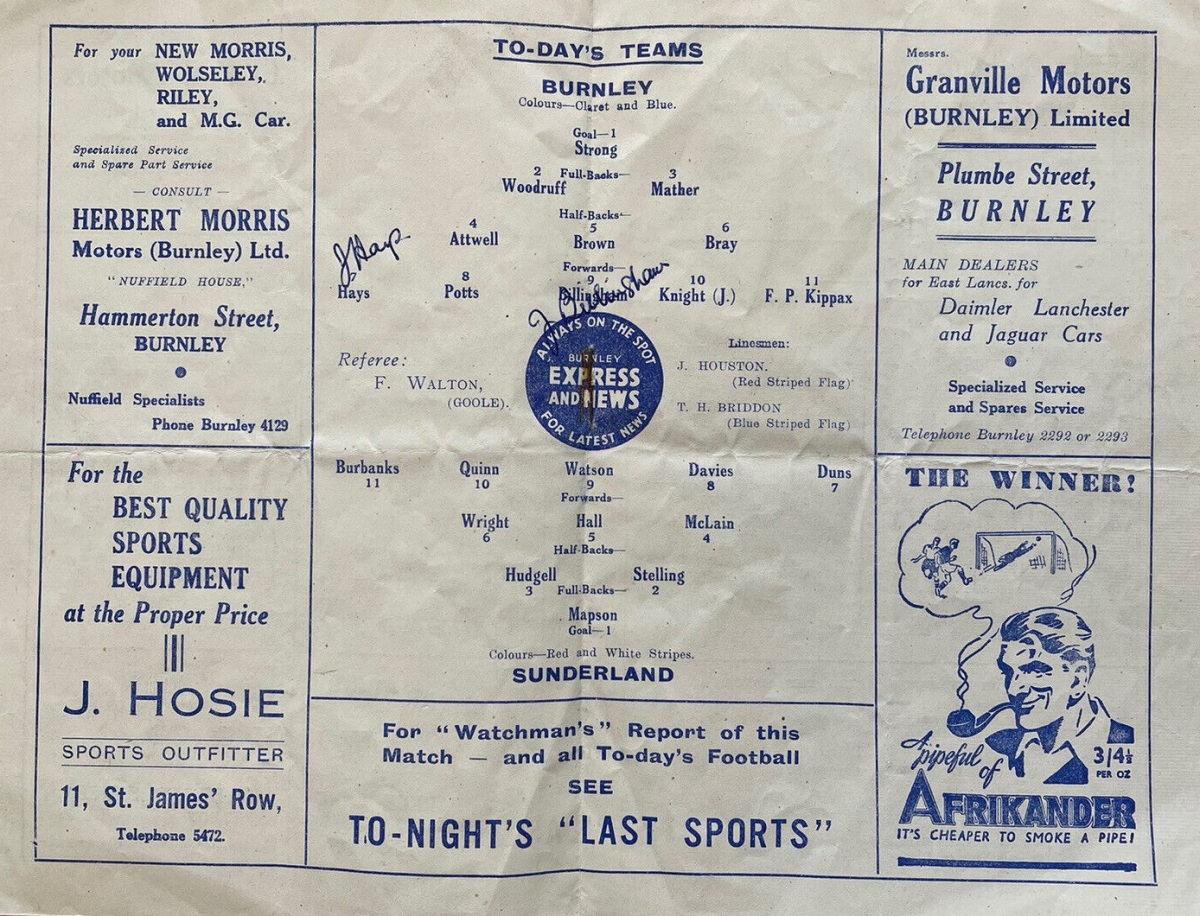 For your NEW MORRIS,
WOLSELEY,
RILEY,
and M.G. Car.
Specialized Service
and Spare Part Service
— CONSULT —
HERBERT MORRIS
Motors (Burnley) Ltd.
"NUFFIELD HOUSE,"
Hammerton Street,
BURNLEY
Nuffield Specialists
Phone Burnley 4129
For the
BEST QUALITY
SPORTS
EQUIPMENT
at the Proper Price
J. HOSIE
SPORTS OUTFITTER
11, St. James' Row,
Telephone 5472.
TO-DAY'S TEAMS
BURNLEY
Colours—Claret and Blue.
Goal—1
Strong
2 Full-Backs— 3
Woodruff Mather
Half-Backs—
4 5 6
Attwell Brown Bray
J Hays
Forwards—
7 8 9 10 11
Hays Potts Billingham Knight (J.) F. P. Kippax
J Billingham
Referee:
F. WALTON,
(GOOLE).
ALWAYS ON THE SPOT
BURNLEY
EXPRESS
AND NEWS
FOR LATEST NEWS
Linesmen:
J. HOUSTON.
(Red Striped Flag)
T. H. BRIDDON
(Blue Striped Flag)
Burbanks Quinn Watson Davies Duns
11 10 9 8 7
Forwards—
Wright Hall McLain
6 5 4
Half-Backs—
Hudgell Stelling
3 Full-Backs— 2
Mapson
Goal—1
Colours—Red and White Stripes.
SUNDERLAND
For "Watchman's" Report of this
Match — and all To-day's Football
SEE
TO-NIGHT'S "LAST SPORTS"
Messrs.
Granville Motors
(BURNLEY) Limited
Plumbe Street,
BURNLEY
MAIN DEALERS
for East Lancs. for
Daimler Lanchester
and Jaguar Cars
Specialized Service
and Spares Service
Telephone Burnley 2292 or 2293
THE WINNER!
A pipeful
of
3/4½
PER OZ
AFRIKANDER
IT'S CHEAPER TO SMOKE A PIPE!